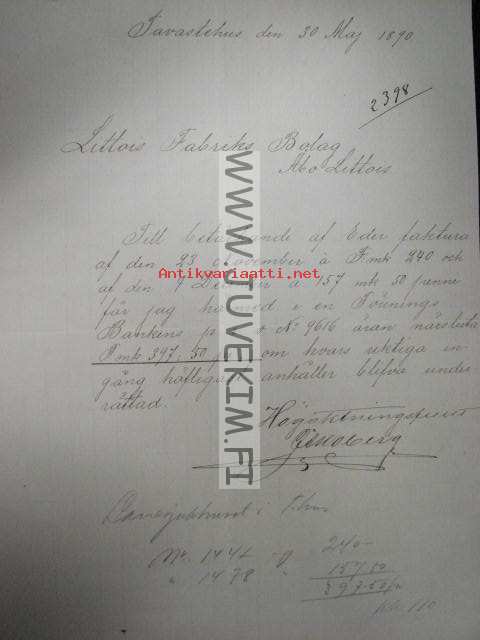 Tavastehus den 30 Maj 1890
2398
Littois Fabriks Bolag
Åbo Littois
Till betalande af Eder faktura
af den 23 November à Fmk 240 och
af den 7 December à 157 mk 50 penne
får jag härmed i en Förenings
Bankens No 9616 äran närsluta
Fmk 397,50 om hvars riktiga in
gång höfligast anhåller blifva under
rättad.
Högaktningsfullt
No. 1442 240-
" 1478 157.50
397.50
WWW.JUVEKIM.FI
Antikvariaatti.net